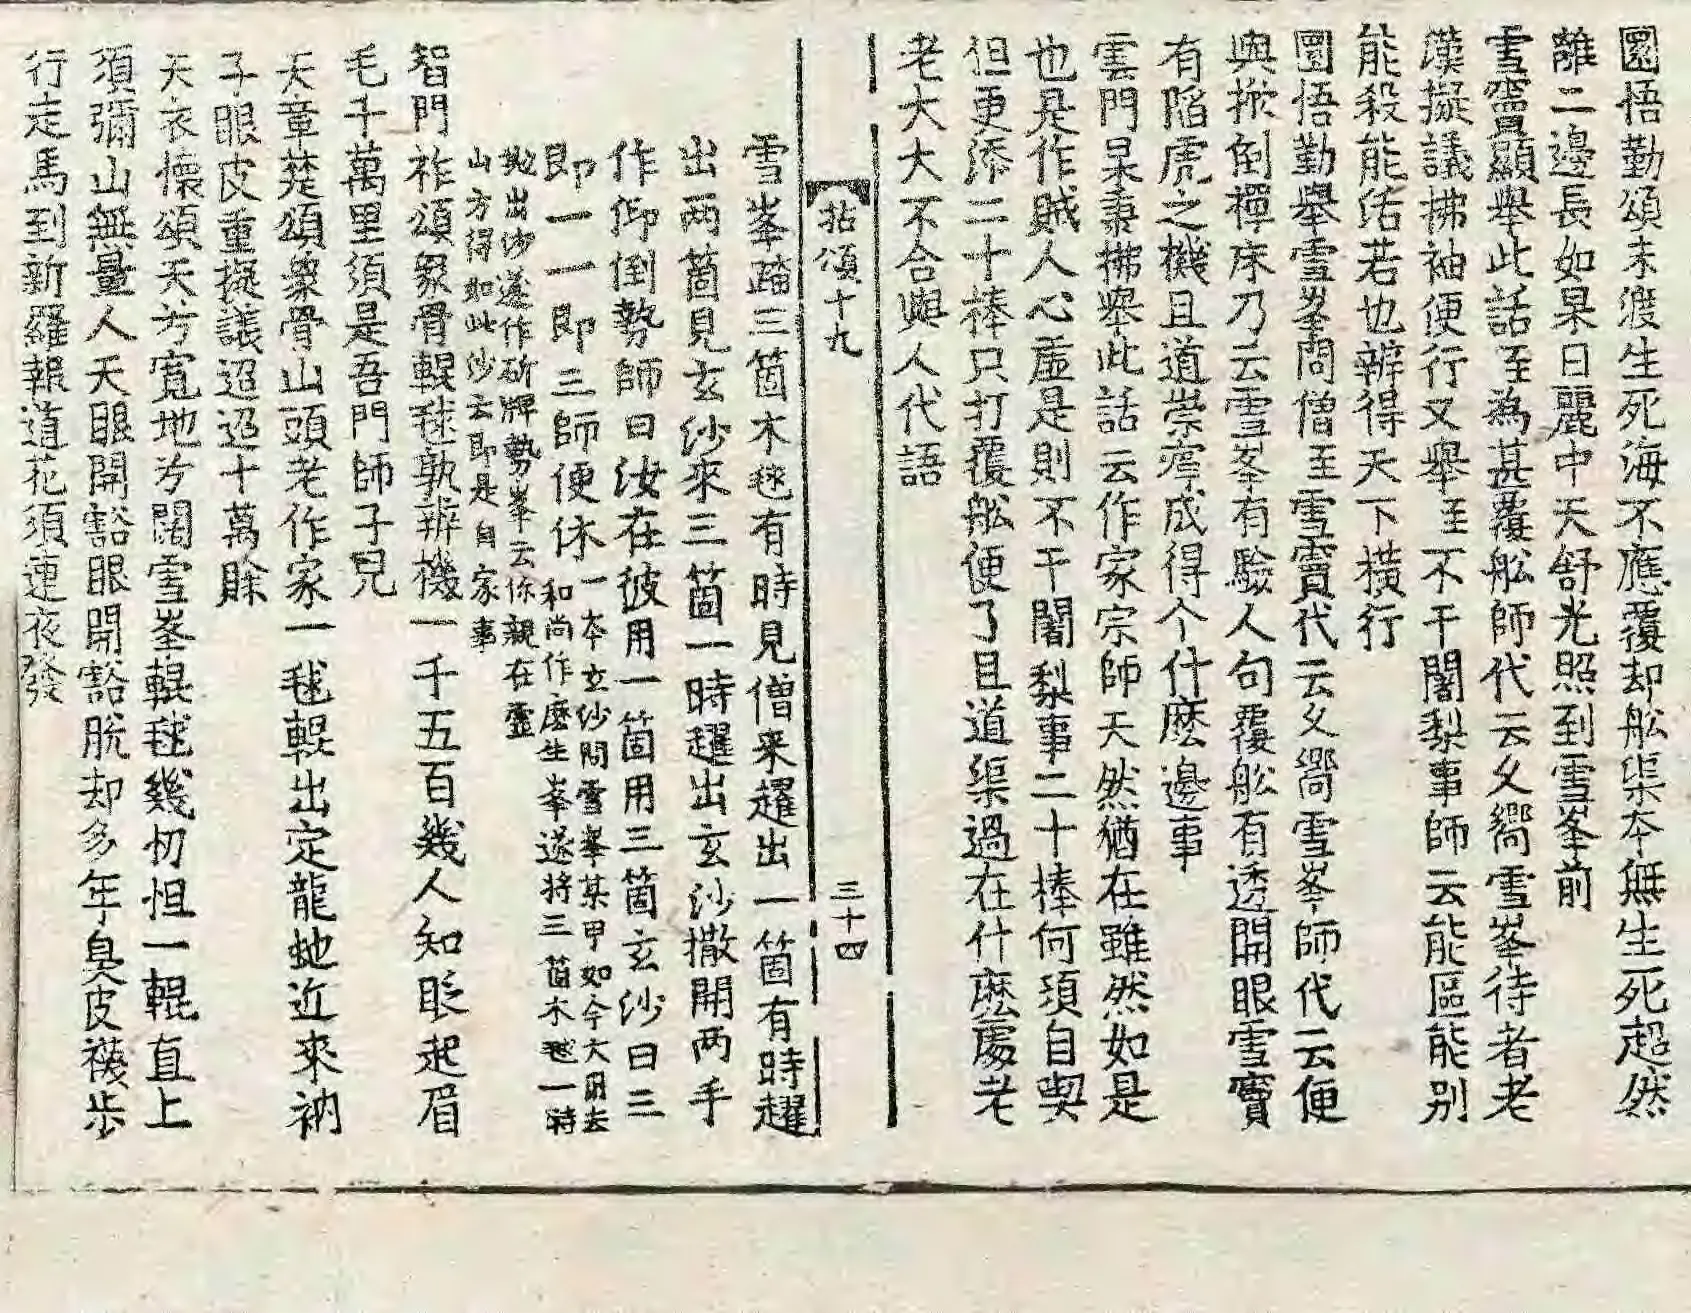 圜悟勤頌未渡生死海不應覆却舩渠夲無生死超然
離二邊長如杲日麗中天舒光照到雪峯前
雪竇顯擧此話至爲甚覆舩師代云久嚮雪峯待者老
漢擬議拂袖便行又擧至不干闍梨事師云能區能别
能殺能活若也辨得天下橫行
圜悟勤擧雪峯問僧至雪竇代云久嚮雪峯師代云便
與掀倒禪床乃云雪峯有驗人句覆舩有透開眼雪竇
有陷虎之機且道崇寧成得个什麽邊事
雲門杲秉拂擧此話云作家宗師天然猶在雖然如是
也是作賊人心虛是則不干闍梨事二十棒何須自喫
但更添二十棒只打覆舩便了且道渠過在什麽處老
老大大不合與人代語
拈頌十九 三十四
雪峯踏三箇木毬有時見僧来趯出一箇有時趯
出两箇見玄沙來三箇一時趯出玄沙撒開两手
作仰倒勢師曰汝在彼用一箇用三箇玄沙曰三
即一一即三師便休一夲玄沙問雪峯某甲如今大用去
和尚作麽生峯遂將三箇木毬一時
抛出沙遂作斫牌勢峯云你親在靈
山方得如此沙云即是自家事
智門祚頌象骨輥毬孰辨機一千五百幾人知眨起眉
毛千萬里須是吾門師子兒
天章楚頌象骨山頭老作家一毬輥出定龍虵近來衲
子眼皮重擬議迢迢十萬賖
天衣懷頌天方寬地方闊雪峯輥毬幾忉怛一輥直上
須彌山無量人天眼開豁眼開豁脱却多年臭皮襪歩
行走馬到新羅報道花須連夜發